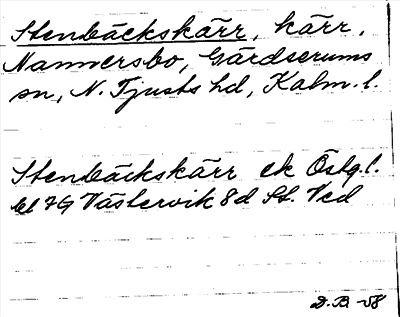 Stenbäckskärr, kärr,
Nannersbo, Gärdserums
sn, N. Tjusts hd, Kalm. l.
Stenbäckskärr ek Östg. l.
bl 7G Västervik 8d St. Ved
D. B. -58